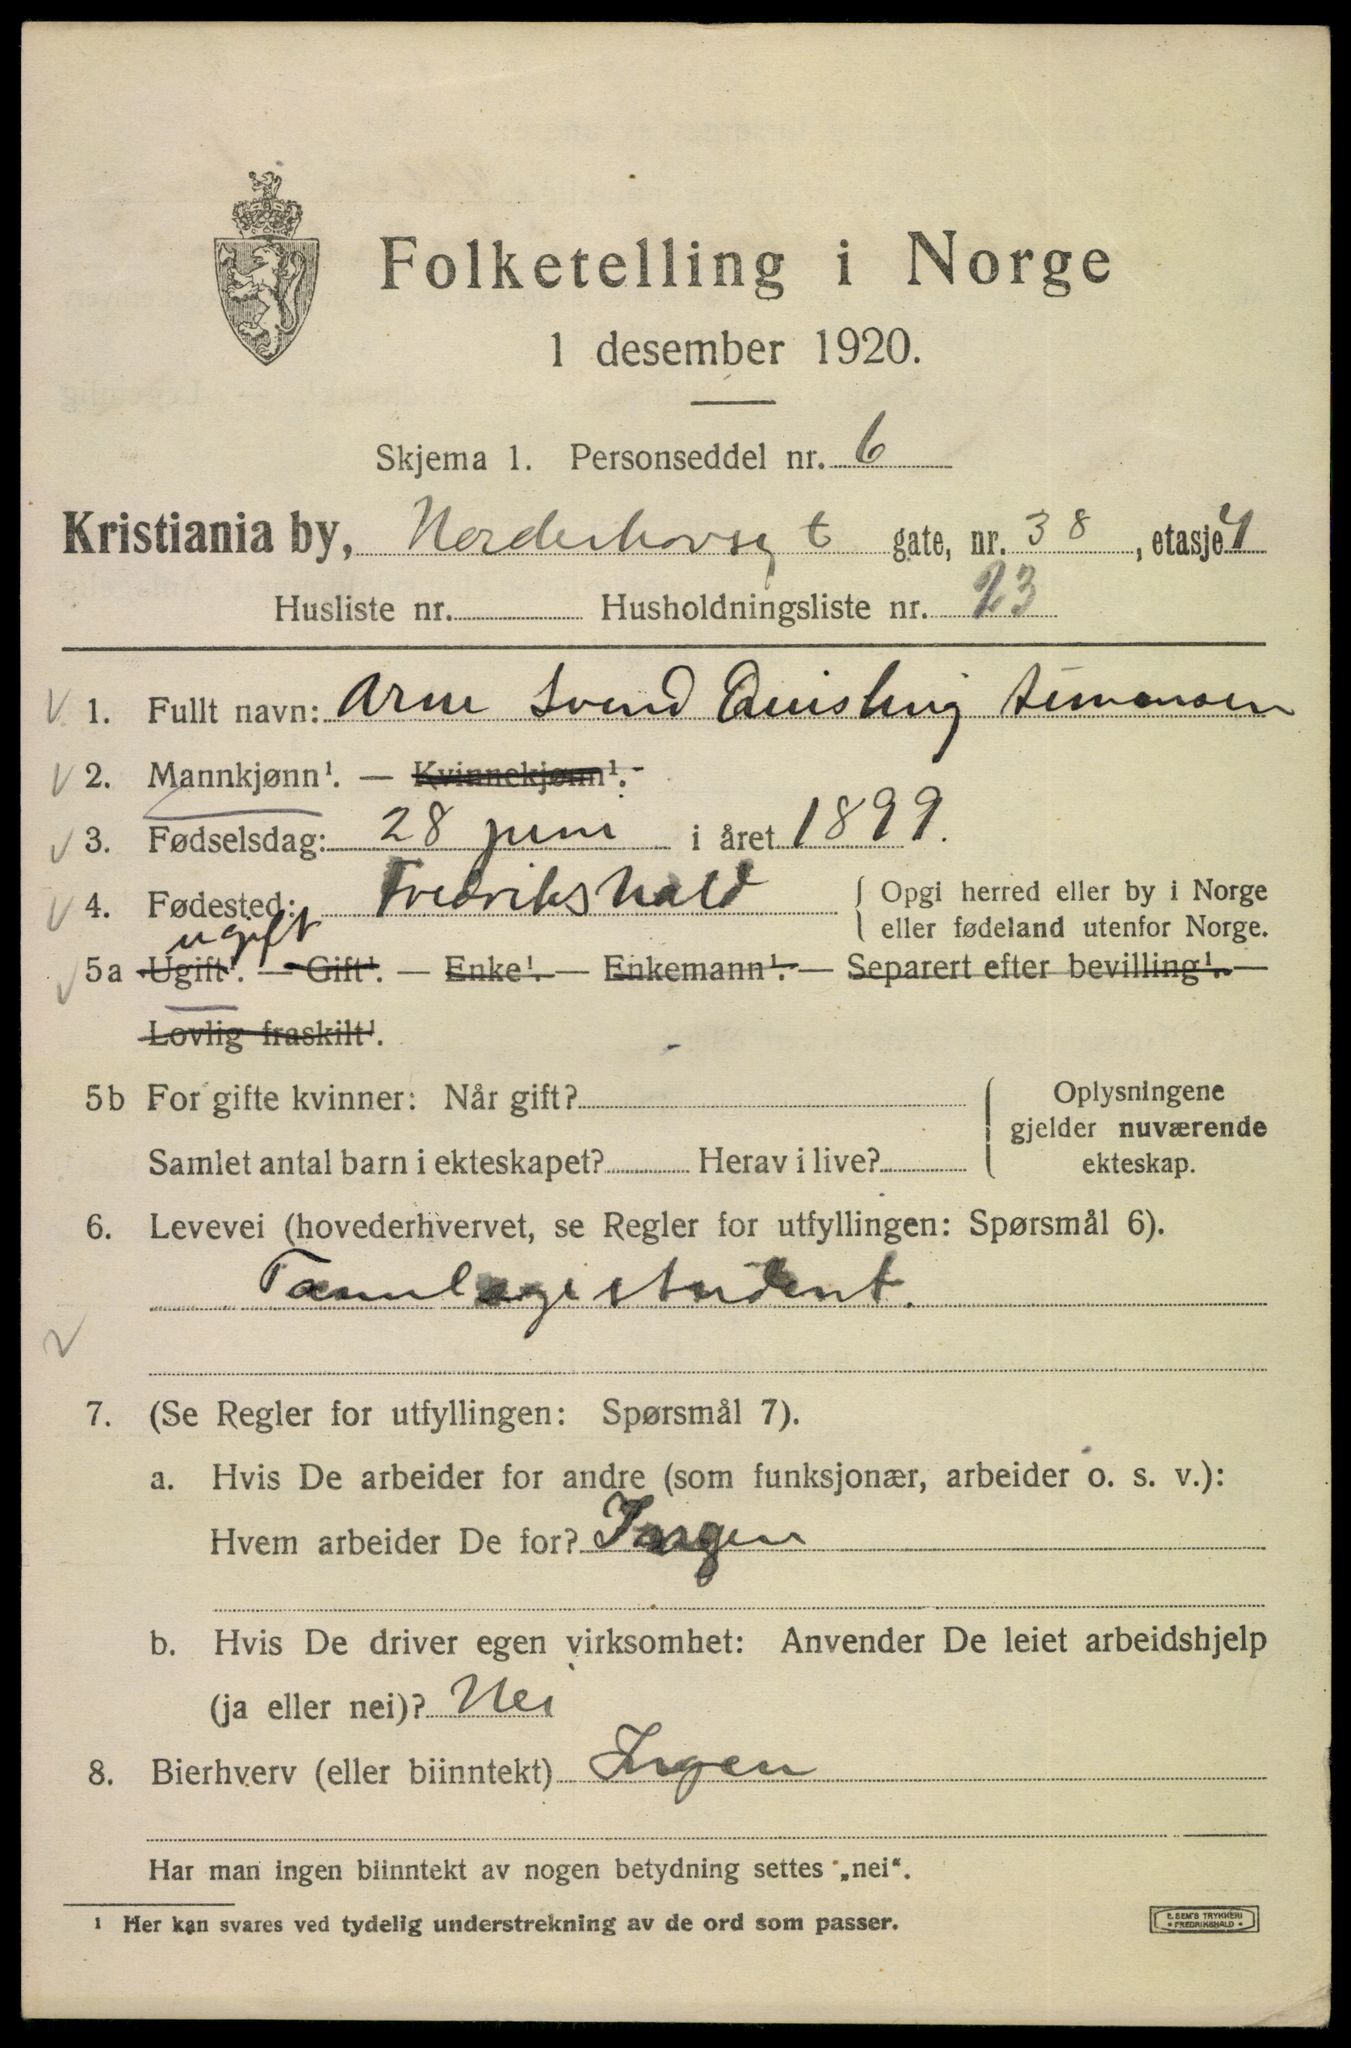 Folketelling i Norge
1 desember 1920.
Skjema 1. Personseddel nr. 6
Kristiania by, Norderhovsgt gate, nr. 38, etasje 4
Husliste nr. Husholdningsliste nr. 23
V 1. Fullt navn: Arne Svend Quisling Simensen
V 2. Mannkjønn¹. — Kvinnekjønn¹.
V 3. Fødselsdag: 28 juni i året 1899.
V 4. Fødested: Fredrikshald { Opgi herred eller by i Norge
eller fødeland utenfor Norge.
ugift
V 5a Ugift¹. — Gift¹. — Enke¹. — Enkemann¹. — Separert efter bevilling¹. —
Lovlig fraskilt¹.
5b For gifte kvinner: Når gift? { Oplysningene
gjelder nuværende
Samlet antal barn i ekteskapet? Herav i live? ekteskap.
6. Levevei (hovederhvervet, se Regler for utfyllingen: Spørsmål 6).
Tannlægestudent.
7. (Se Regler for utfyllingen: Spørsmål 7).
a. Hvis De arbeider for andre (som funksjonær, arbeider o. s. v.):
Hvem arbeider De for? Ingen
b. Hvis De driver egen virksomhet: Anvender De leiet arbeidshjelp
(ja eller nei)? Nei
8. Bierhverv (eller biinntekt) Ingen
Har man ingen biinntekt av nogen betydning settes „nei“.
¹ Her kan svares ved tydelig understrekning av de ord som passer.
E. SEM'S TRYKKERI
FREDRIKSHALD